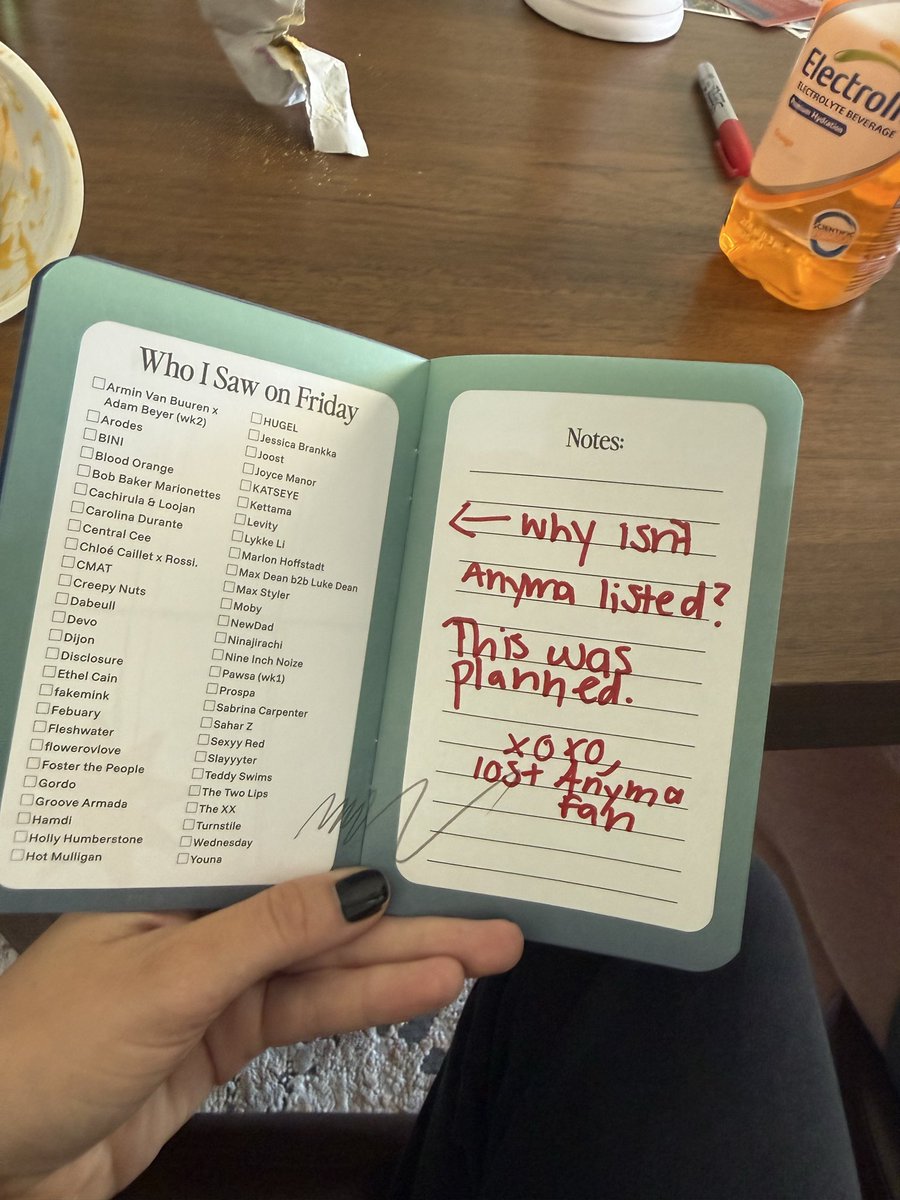 Electrol
ELECTROLYTE BEVERAGE
Premium Hydration
Orange
SCIENTIFIC
Who I Saw on Friday
Armin Van Buuren x
Adam Beyer (wk2)
Arodes
BINI
Blood Orange
Bob Baker Marionettes
Cachirula & Loojan
Carolina Durante
Central Cee
Chloé Caillet x Rossi.
CMAT
Creepy Nuts
Dabeull
Devo
Dijon
Disclosure
Ethel Cain
fakemink
Febuary
Fleshwater
flowerovlove
Foster the People
Gordo
Groove Armada
Hamdi
Holly Humberstone
Hot Mulligan
HUGEL
Jessica Brankka
Joost
Joyce Manor
KATSEYE
Kettama
Levity
Lykke Li
Marlon Hoffstadt
Max Dean b2b Luke Dean
Max Styler
Moby
NewDad
Ninajirachi
Nine Inch Noize
Pawsa (wk1)
Prospa
Sabrina Carpenter
Sahar Z
Sexyy Red
Slayyyter
Teddy Swims
The Two Lips
The XX
Turnstile
Wednesday
Youna
Notes:
← Why isn't
Anyma listed?
This was
planned.
xoxo,
lost Anyma
Fan